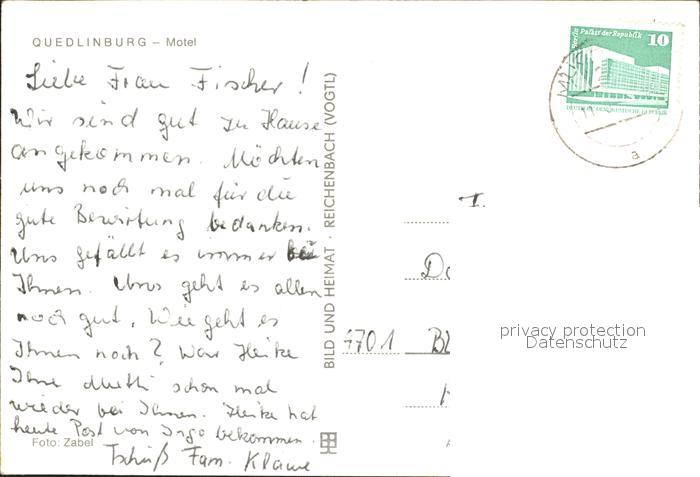 QUEDLINBURG – Motel
Liebe Frau Fischer!
Wir sind gut zu Hause
angekommen. Möchten
uns noch mal für die
gute Bewirtung bedanken.
Uns gefällt es immer bei
Ihnen. Uns geht es allen
noch gut. Wie geht es
Ihnen noch? War Heike
Ihre Mutti schon mal
wieder bei Ihnen. Heike hat
heute Post von Ingo bekommen.
Foto: Zabel
Tschüß Fam. Klawe
BILD UND HEIMAT · REICHENBACH (VOGTL)
Berlin Palast der Republik
10
DEUTSCHE DEMOKRATISCHE REPUBLIK
a
7701
privacy protection
Datenschutz